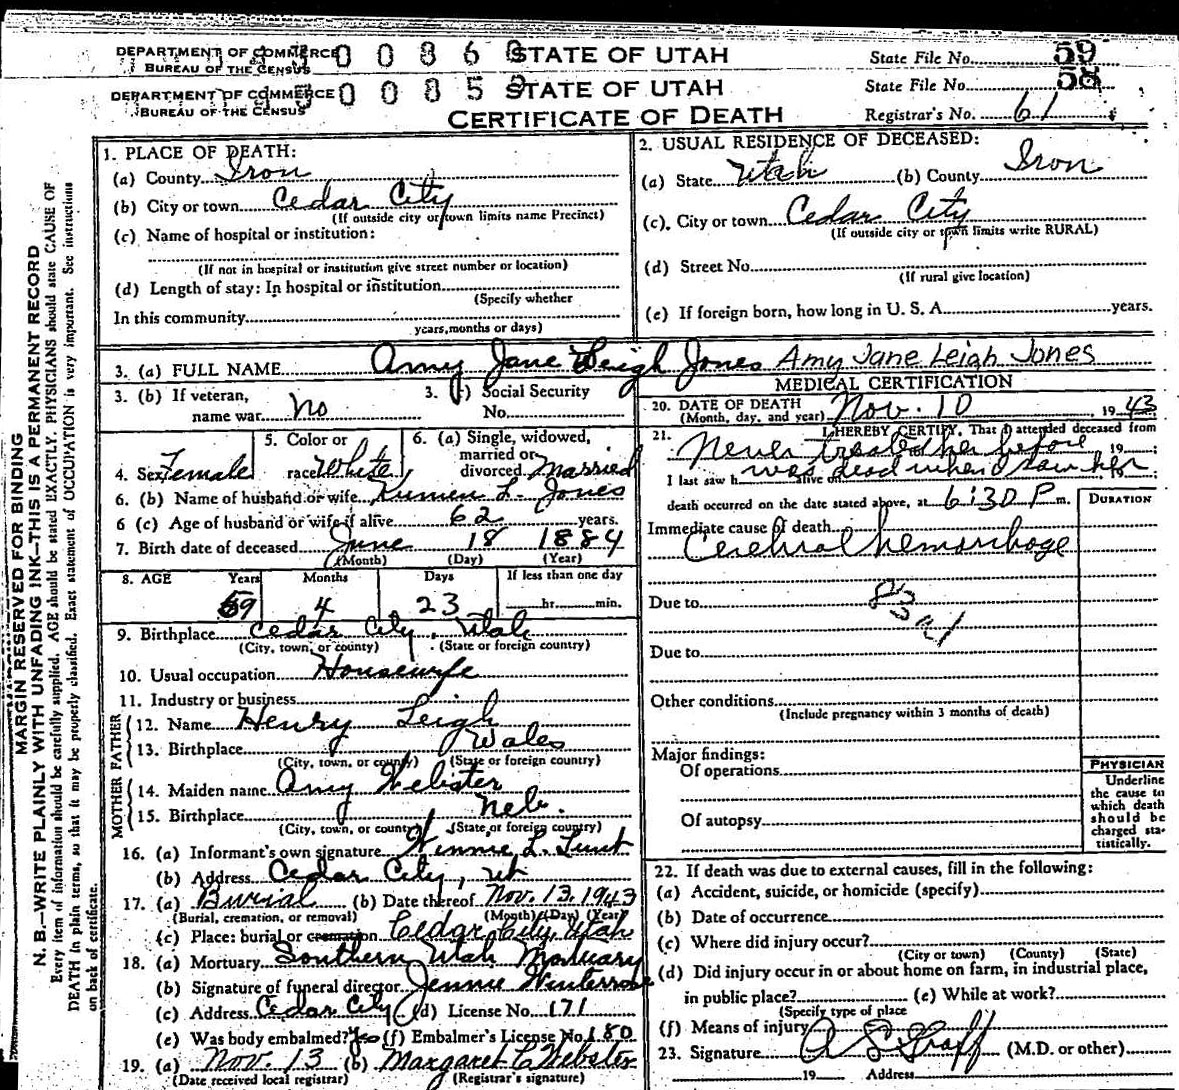 DEPARTMENT OF COMMERCE 0 0 8 6 STATE OF UTAH State File No. 59
BUREAU OF THE CENSUS
DEPARTMENT OF COMMERCE 0 0 8 5 9 STATE OF UTAH State File No. 58
BUREAU OF THE CENSUS
CERTIFICATE OF DEATH Registrar's No. 61
MARGIN RESERVED FOR BINDING
N. B.—WRITE PLAINLY WITH UNFADING INK—THIS IS A PERMANENT RECORD
Every item of information should be carefully supplied. AGE should be stated EXACTLY. PHYSICIANS should state CAUSE OF
DEATH in plain terms, so that it may be properly classified. Exact statement of OCCUPATION is very important. See instructions
on back of certificate.
1. PLACE OF DEATH:
(a) County Iron
(b) City or town Cedar City
(If outside city or town limits name Precinct)
(c) Name of hospital or institution:
(If not in hospital or institution give street number or location)
(d) Length of stay: In hospital or institution
(Specify whether
In this community
years, months or days)
2. USUAL RESIDENCE OF DECEASED:
(a) State Utah (b) County Iron
(c) City or town Cedar City
(If outside city or town limits write RURAL)
(d) Street No.
(If rural give location)
(e) If foreign born, how long in U. S. A. years.
3. (a) FULL NAME Amy Jane Leigh Jones Amy Jane Leigh Jones
3. (b) If veteran, name war no
3. (c) Social Security No.
4. Sex Female
5. Color or race White
6. (a) Single, widowed, married or divorced Married
6. (b) Name of husband or wife Kumen L. Jones
6 (c) Age of husband or wife if alive 62 years.
7. Birth date of deceased June 18 1884
(Month) (Day) (Year)
8. AGE Years Months Days If less than one day
59 4 23 hr. min.
9. Birthplace Cedar City, Utah
(City, town, or county) (State or foreign country)
10. Usual occupation Housewife
11. Industry or business
FATHER
12. Name Henry Leigh
13. Birthplace Wales
(City, town, or county) (State or foreign country)
MOTHER
14. Maiden name Amy Webster
15. Birthplace Neb.
(City, town, or county) (State or foreign country)
16. (a) Informant's own signature Winnie L. Lunt
(b) Address Cedar City, Ut
17. (a) Burial (b) Date thereof Nov. 13, 1943
(Burial, cremation, or removal) (Month) (Day) (Year)
(c) Place: burial or cremation Cedar City, Utah
18. (a) Mortuary Southern Utah Mortuary
(b) Signature of funeral director Jennie Winterrose
(c) Address Cedar City (d) License No. 171
(e) Was body embalmed? Yes (f) Embalmer's License No. 180
19. (a) Nov. 13 (b) Margaret C Webster
(Date received local registrar) (Registrar's signature)
MEDICAL CERTIFICATION
20. DATE OF DEATH Nov. 10, 1943
(Month, day, and year)
21. I HEREBY CERTIFY, That I attended deceased from
Never treated her before 19
was dead when I saw her
I last saw h alive on
death occurred on the date stated above, at 6:30 P m. DURATION
Immediate cause of death
Cerebral hemorrhage
Due to 83
Due to
Other conditions
(Include pregnancy within 3 months of death)
Major findings:
Of operations
Of autopsy
PHYSICIAN
Underline
the cause to
which death
should be
charged sta-
tistically.
22. If death was due to external causes, fill in the following:
(a) Accident, suicide, or homicide (specify)
(b) Date of occurrence
(c) Where did injury occur?
(City or town) (County) (State)
(d) Did injury occur in or about home on farm, in industrial place,
in public place? (e) While at work?
(Specify type of place
(f) Means of injury
23. Signature A L Graff (M.D. or other)
19 Address